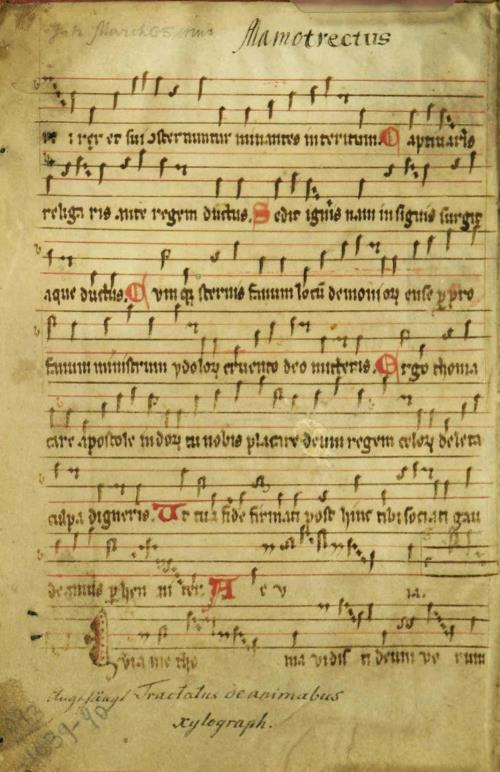 Mamotrectus
rer et sui osternuntur minantes interitum. C aptivaris
religa ris ante regem ductus. S edit ignis nam in signis surgit
aque ductus. C vm qz sternis fanum locū demoniorꝝ ense ꝑ pro
fanum ministrum ydolorꝝ cruento deo mitteris. E rgo thoma
care apostole indorꝝ tu nobis placare deum regem celorꝝ deleta
culpa digneris. U t tua fide firmati post hinc tibi sociati gau
deamus ꝑ hen ni ter. A e v ia.
uia me tho ma vidis ti deum ve rum
Tractatus de animabus
xylograph.